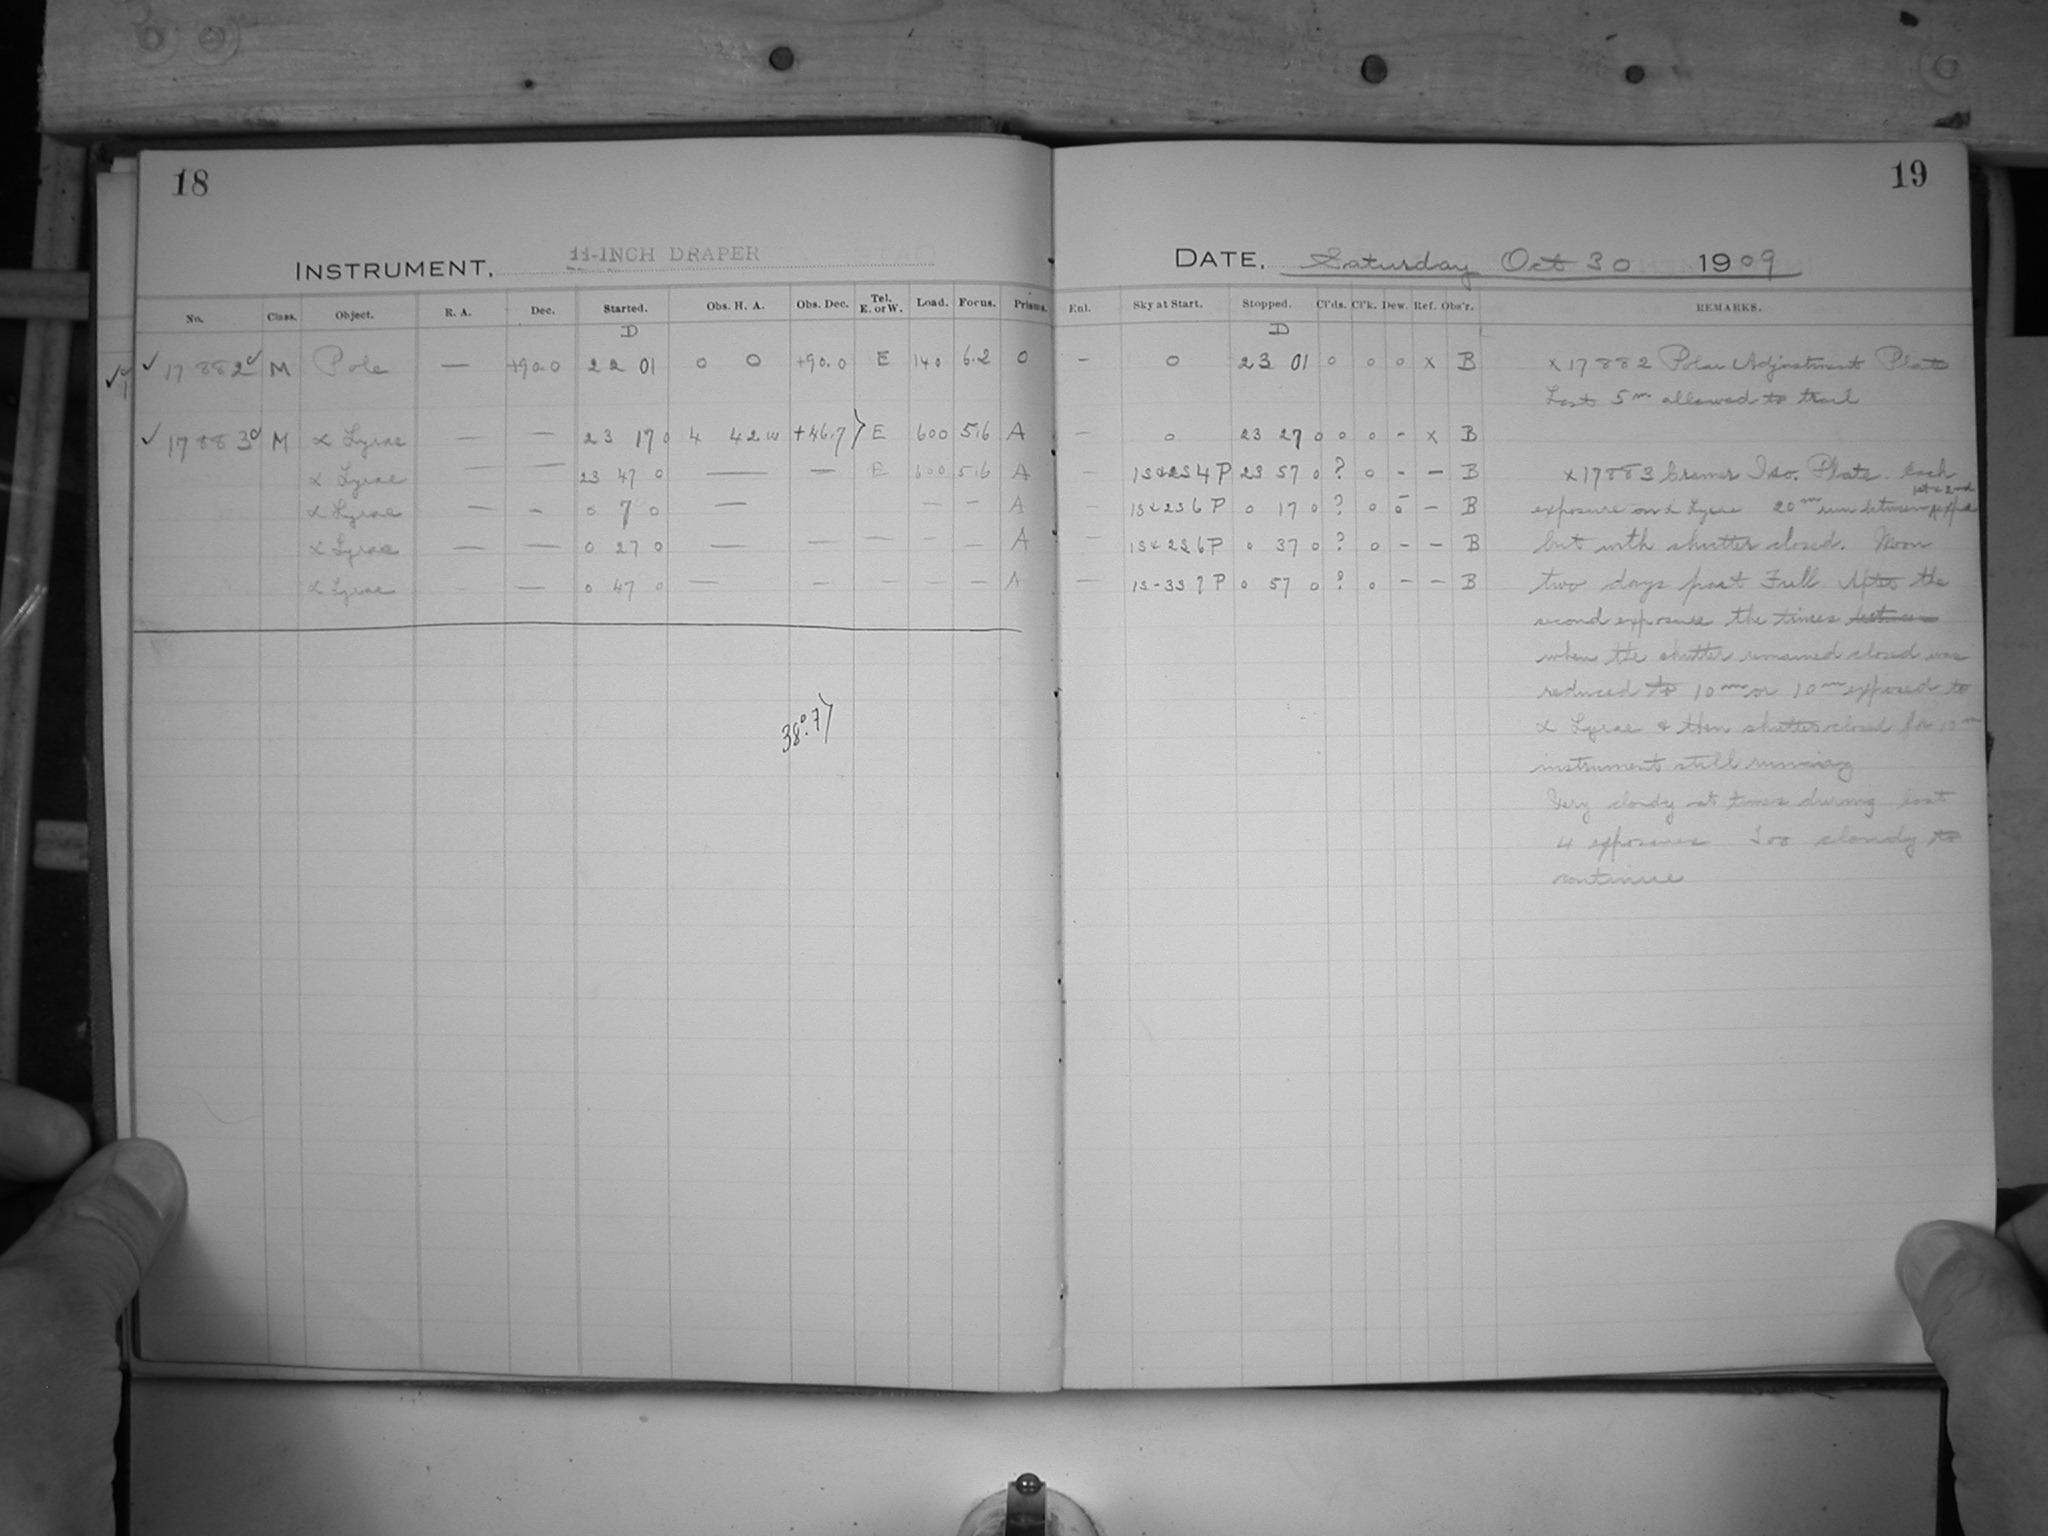 18
INSTRUMENT, 11-INCH DRAPER
No. Class. Object. R. A. Dec. Started. Obs. H. A. Obs. Dec. Tel. E. or W. Load. Focus. Prisms.
D
✓ 17882 M Pole — +90.0 22 01 0 0 +90.0 E 140 6.2 0
✓ 17883 M α Lyrae — — 23 17 0 4 42 w +46.7 } E 600 5.6 A
α Lyrae — — 23 47 0 — — E 600 5.6 A
α Lyrae — - 0 7 0 — — – A
α Lyrae — — 0 27 0 — — — – – A
α Lyrae - — 0 47 0 — – – – – A
38°.7}
19
DATE, Saturday Oct 30 1909
Enl. Sky at Start. Stopped. Cl'ds. Cl'k. Dew. Ref. Obs'r. REMARKS.
D
– 0 23 01 0 0 0 x B x 17882 Polar Adjustment Plate
Last 5m allowed to trail
– 0 23 27 0 0 0 - x B
– 1S&2S 4 P 23 57 0 ? 0 - – B x 17883 Cramer Iso. Plate. Each
1st & 2nd
– 1S&2S 6 P 0 17 0 ? 0 – B exposure on α Lyrae 20m run between exps
– 1S&2S 6 P 0 37 0 ? 0 - – B but with shutter closed. Moon
— 1S-3S 7 P 0 57 0 ? 0 - – B two days past Full After the
second exposure the times
when the shutter remained closed was
reduced to 10m or 10m exposed to
α Lyrae & then shutter closed for 10m
instrument still running
Very cloudy at times during last
4 exposures Too cloudy to
continue